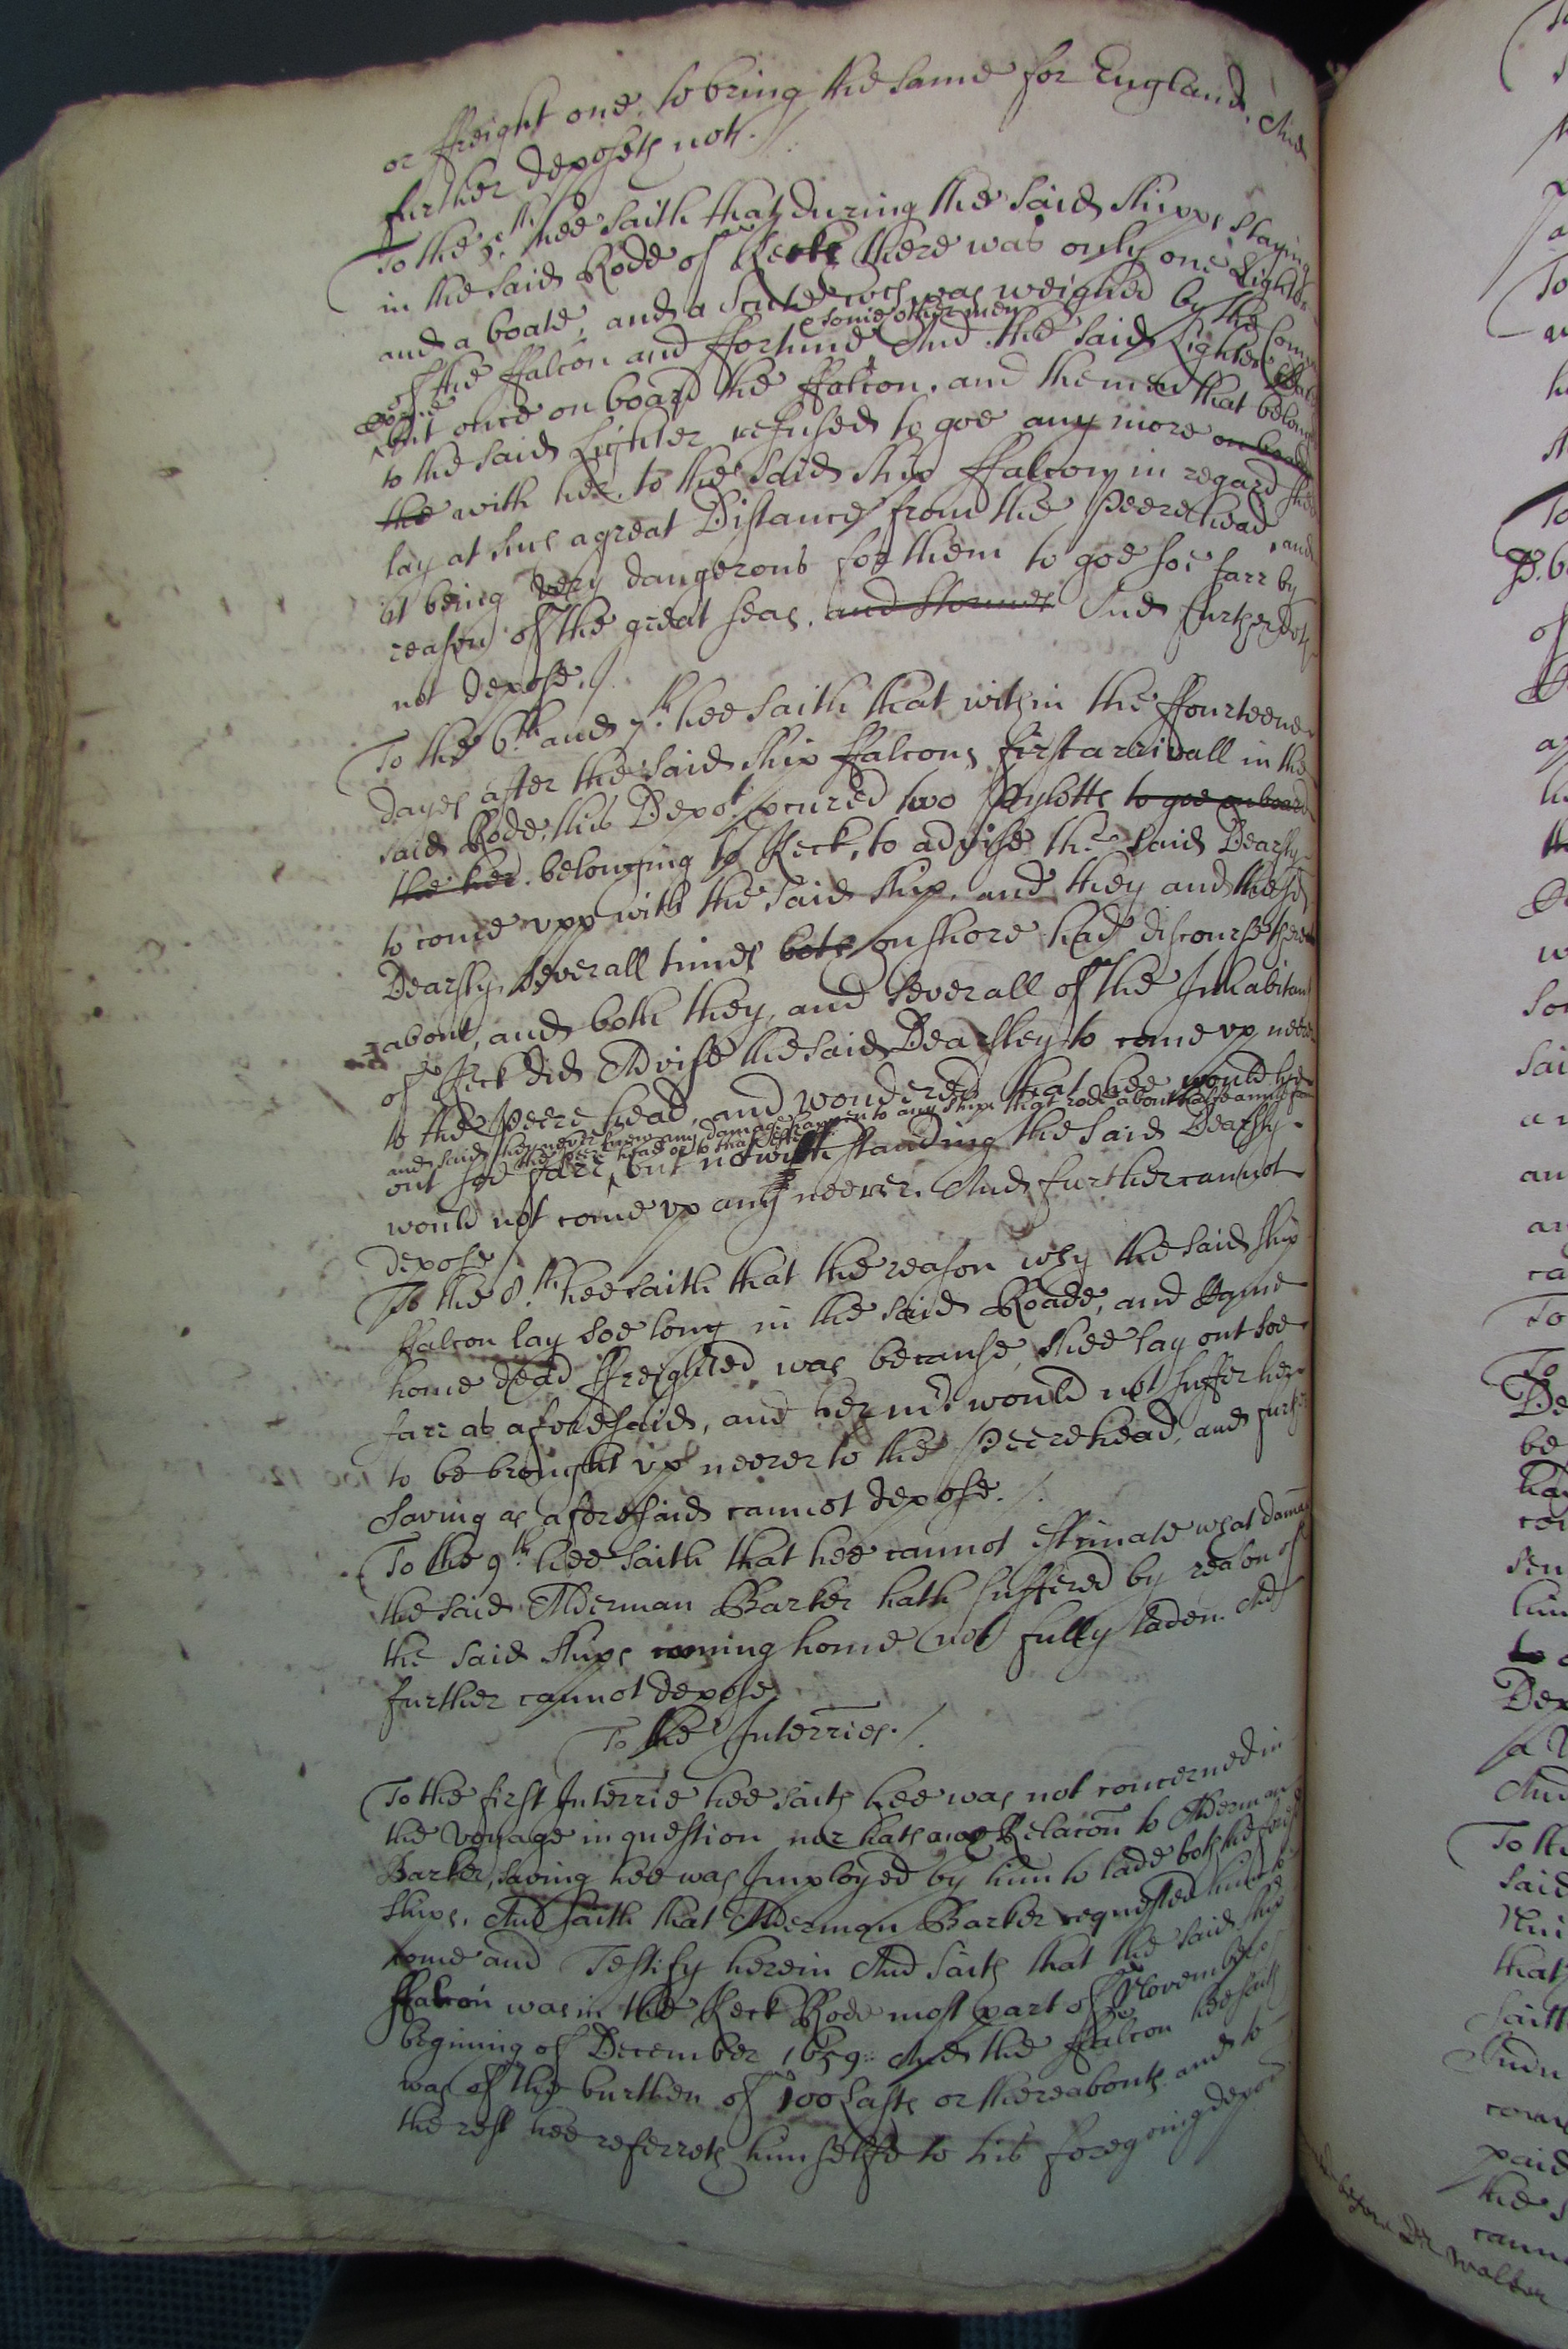 or ffreight one, to bring the same for England, And
further deposeth not./
To the 5th hee saith that during the said shipps staying
in the said Rode of Reck there was only one Lighter
and a boate, and a was weighed by the
of the ffalcon and ffortune & some other men And the said Lighter
but once on board the ffalcon, and the men that belong
to the said Lighter refused to goe any more on board
the with her to the said ship ffalcon in regard shee
lay at such a great Distance from the Peere head, and
it being very dangerous for them to goe soe farr by
reason of the great seas, and stormes And further doth
not depose./
To the 6th and 7th hee saith that within the ffourteene
dayes after the said ship ffalcons first arrivall in the
said Rode, this Depot procured two Pylotts to goe on board
the her belonging to Reck, to advise the said Dearsly
to come upp with the said ship, and they and the sd
Dearsly severall times both on shore had discourse there
about, and both they, and severall of the Inhabitants
of Reck did Advise the said Dearsley to come up neerer
to the Peere head, and wondered that hee would lye
and said they never knew any damage happen to any ship that rode about halfe a mile from
the Peere head or to that effect
out soe farr, but notwithstanding the said Dearsly
would not come up any neerer. And further cannot
depose/
To the 8th hee saith that the reason why the said ship
ffalcon lay soe long in the said Roade, and came
home dead ffreighted was because shee lay out soe
farr as aforesaid, and her mr would not suffer her
to be brought up neerer to the Peere head, and further
saving as aforesaid cannot depose./.
To the 9th hee saith that hee cannot estimate what damage
the said Alderman Barker hath suffered by reason of
the said ships coming home not fully laden. And
further cannot depose
To the Interries./
To the first Interrie hee saith hee was not concerned in
the voyage in question nor hath any Relacon to Alderman
Barker, saving hee was Imployed by him to lade both the foresd
ships, And saith that Alderman Barker requested him to
come and Testify herein And saith that the said ship
ffalcon was in the Reck Rode most part of November &
begining of December 1659: And the ffalcon hee saith
was of the burthen of 100 Lasts or thereabouts and to
the rest hee referreth himselfe to his foregoing depon